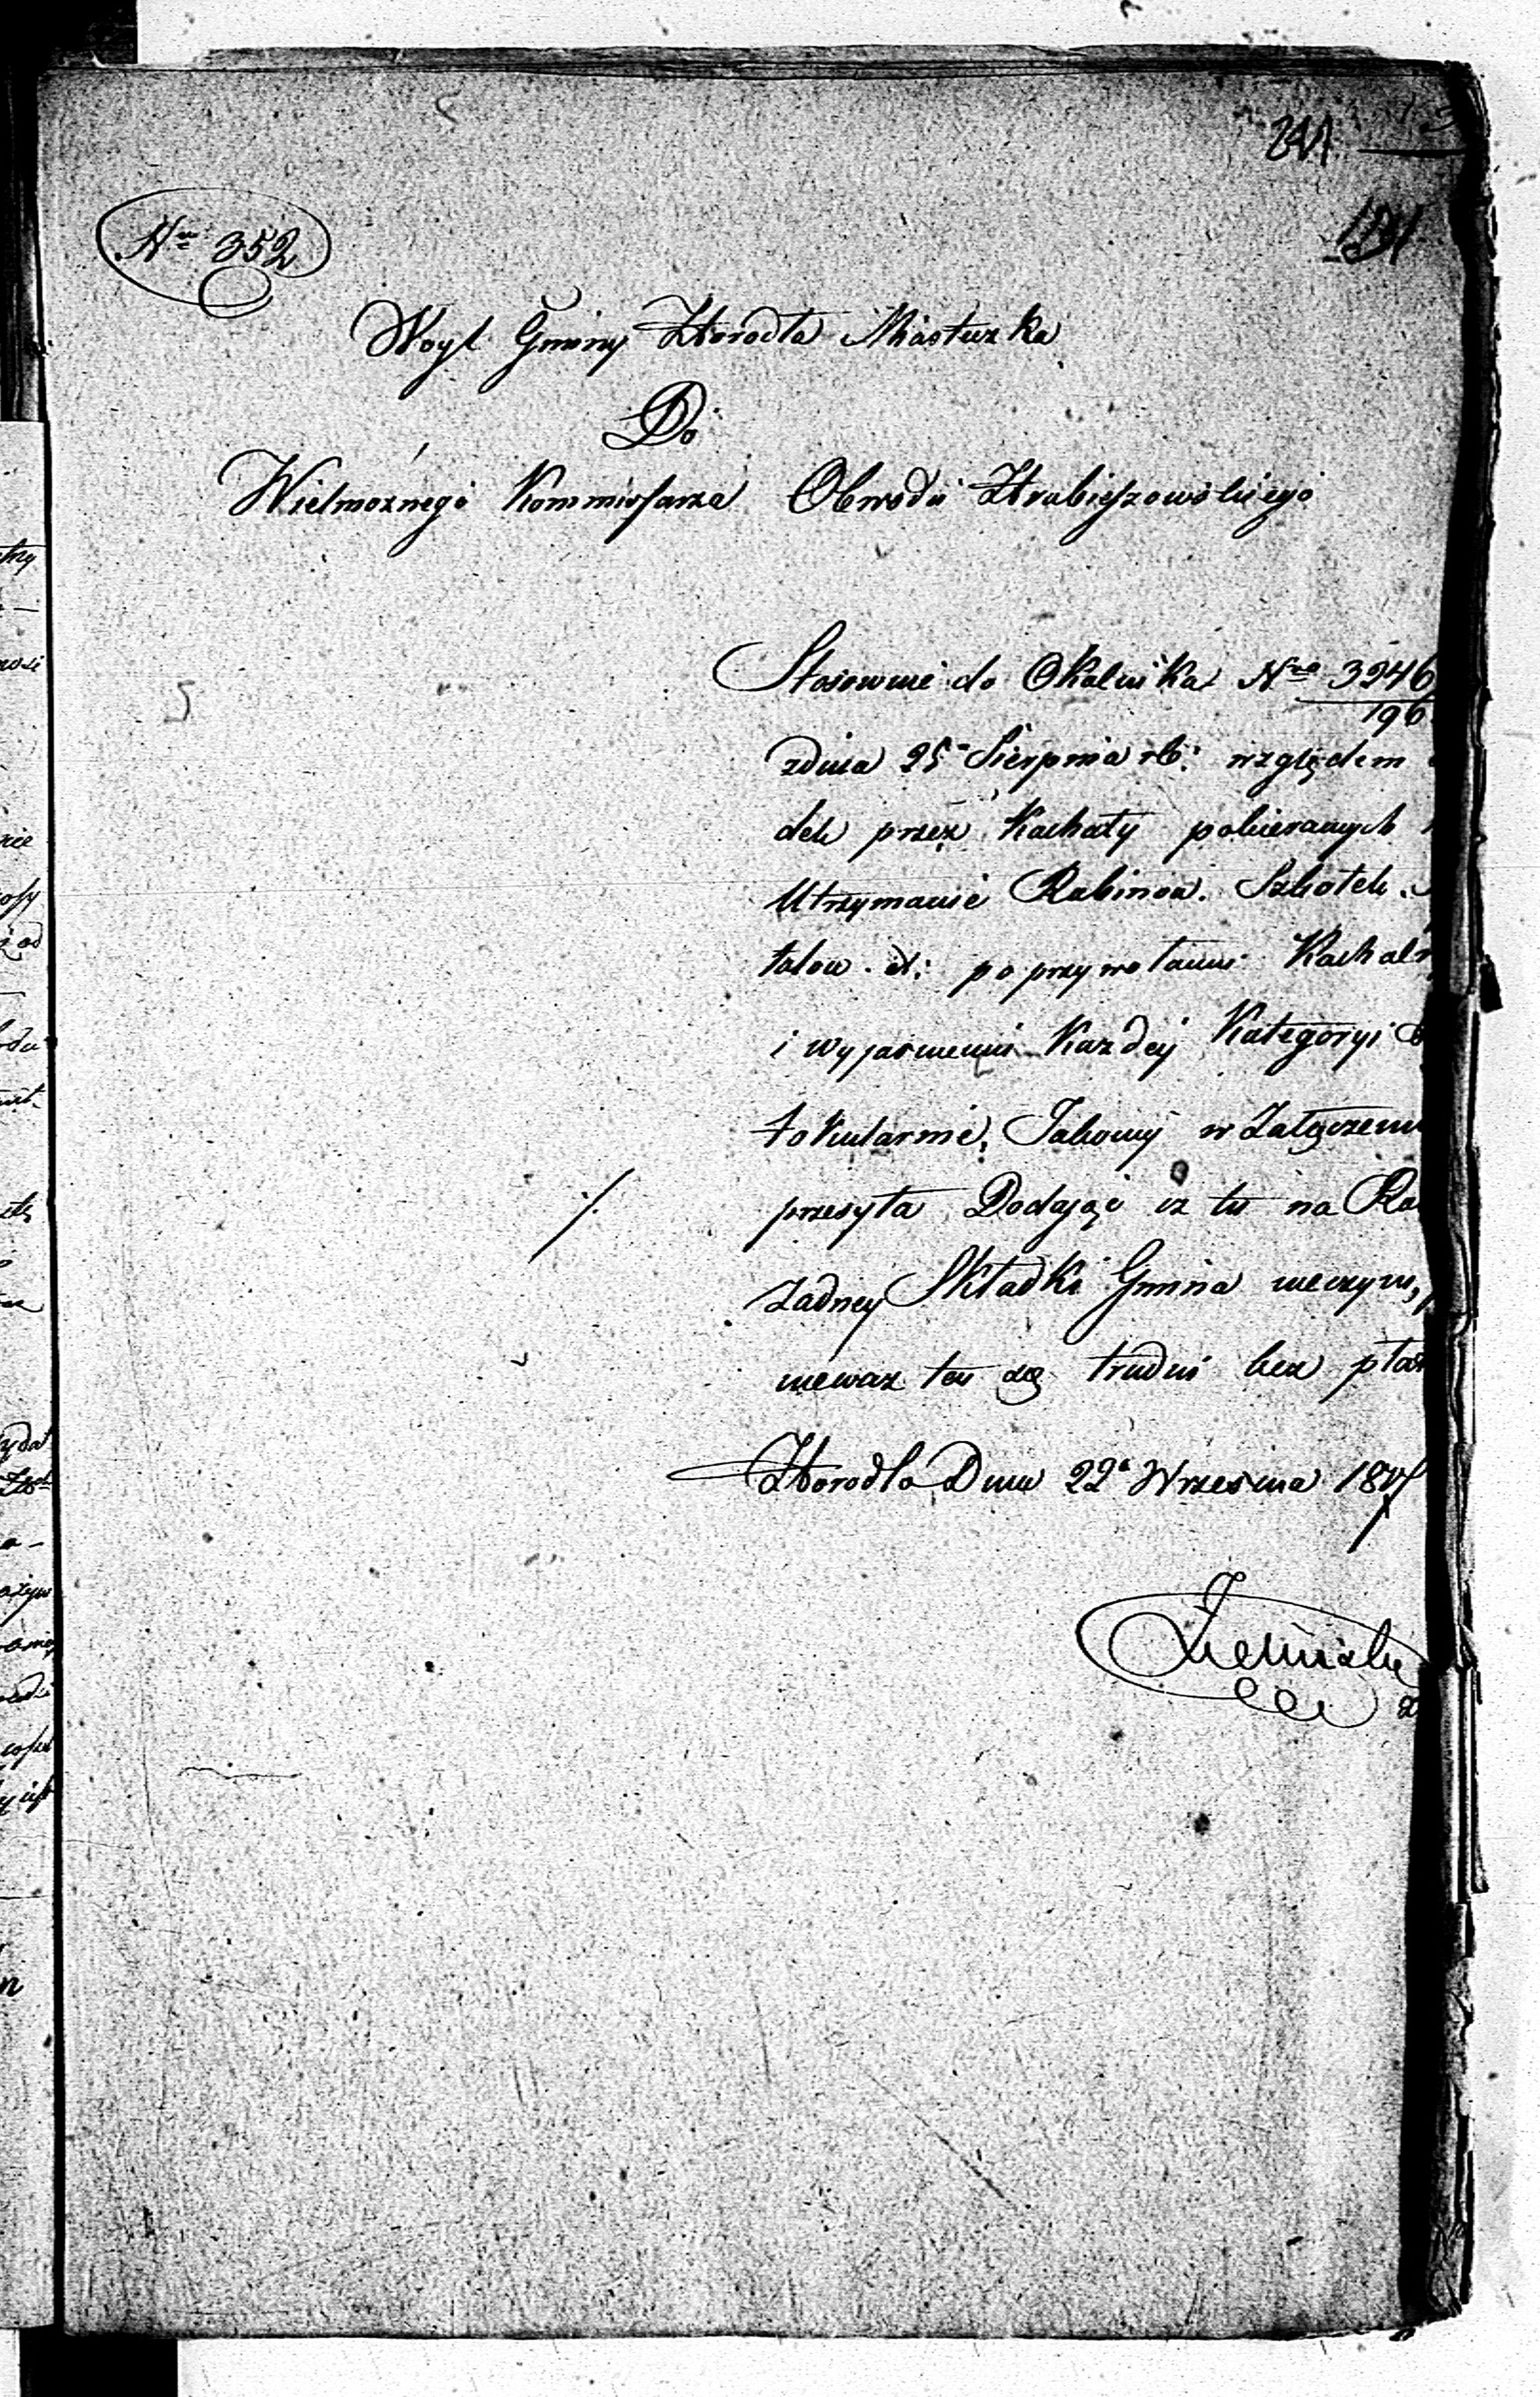 241
191
Nro 352
Woyt Gminy Horodła Miasteczka
Do
Wielmoznego Kommissarza Obwodu Hrubieszowskiego
Stosownie do Okolnika Nro 3246
196
zdnia 25 Sierpnia rb: względem
dek przez Kachały pobieranych
Utrzymanie Rabinow. Szkołek.
talow. et: po przywołaniu Kachal
i wyjasnieniu Kazdey Kategoryi
tokularnie, Takowy w Załączeniu
./. przesyła Dodając iz tu na Ra
żadney Składki Gmina nieczyni,
niewaz ten się trudni bez płat
Horodło Dnia 22 Wrzesnia 18